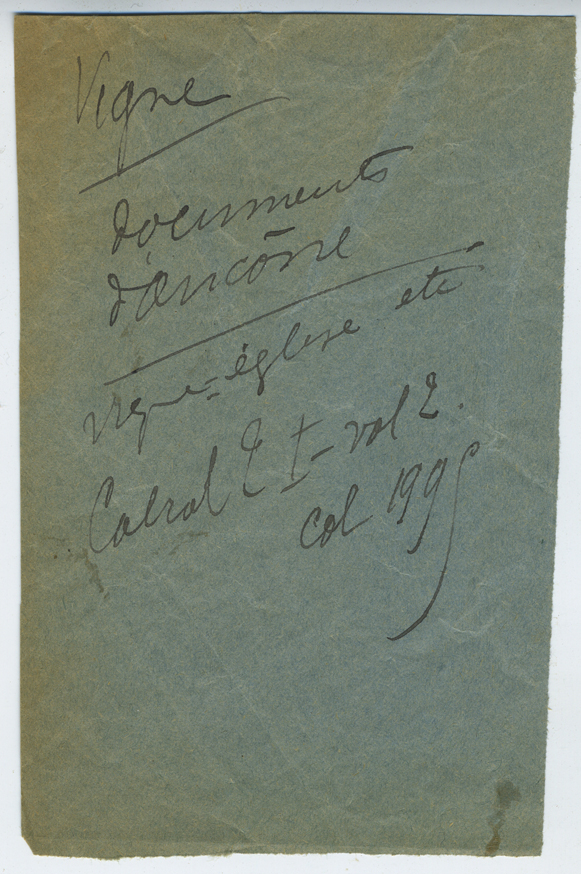 Vigne
documents
d'Ancône
vigne-église etc
Cabrol E t- vol 2.
col 1995